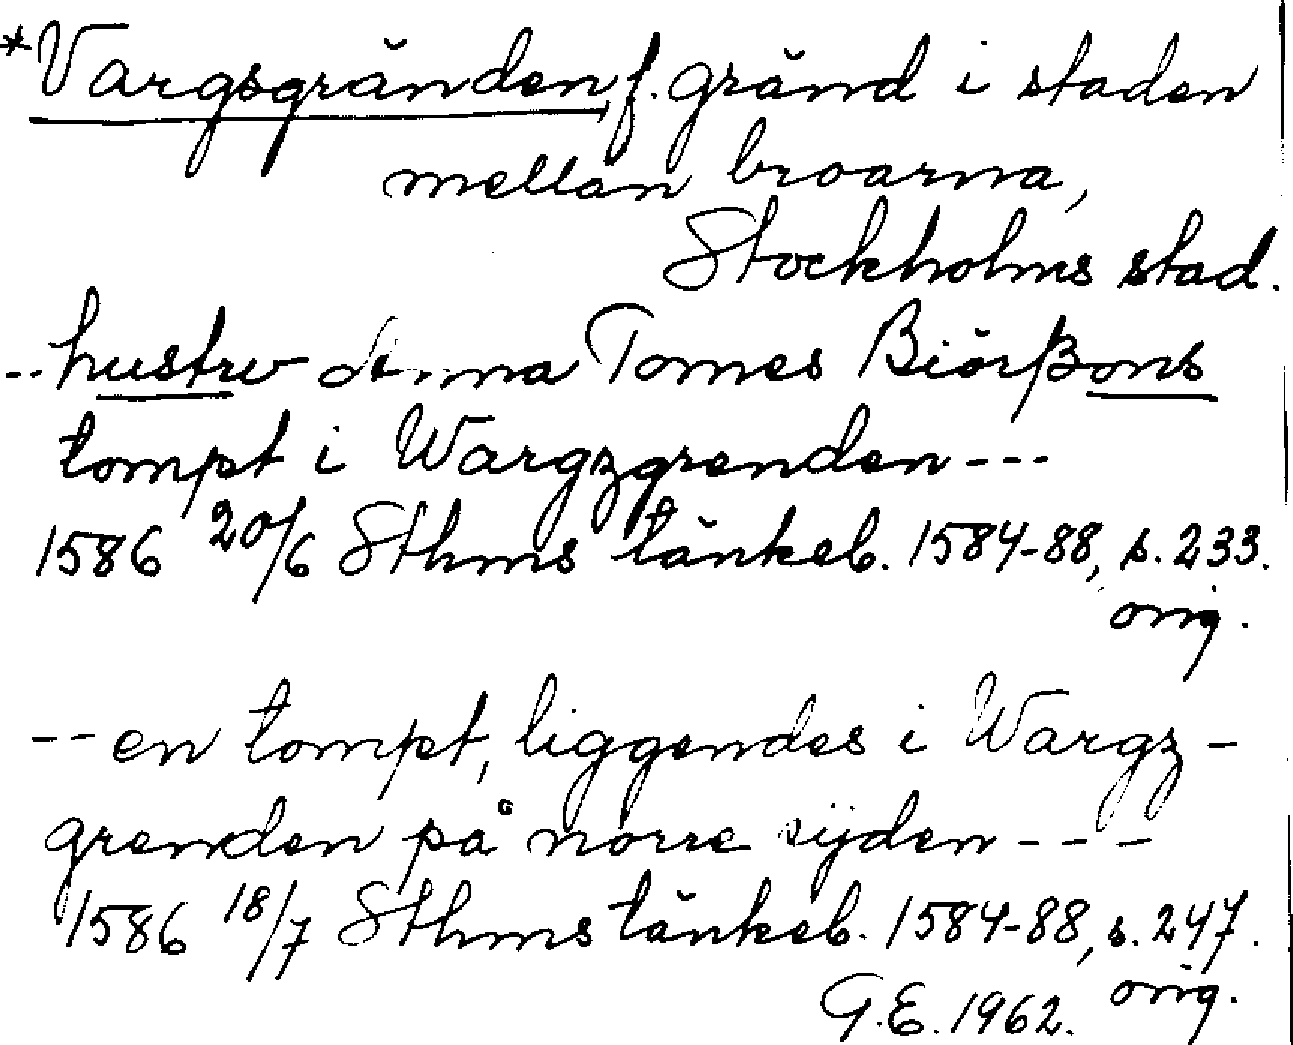 *Vargsgränden, f. gränd i staden
mellan broarna,
Stockholms stad.
-- hustrv Anna Tomes Biörßons
tompt i Wargzgrenden ---
1586 20/6 Sthms tänkeb. 1584-88, s. 233.
orig.
-- en tompt, liggendes i Wargz-
grenden på norre sijden ---
1586 18/7 Sthms tänkeb. 1584-88, s. 247.
orig.
G.E. 1962.